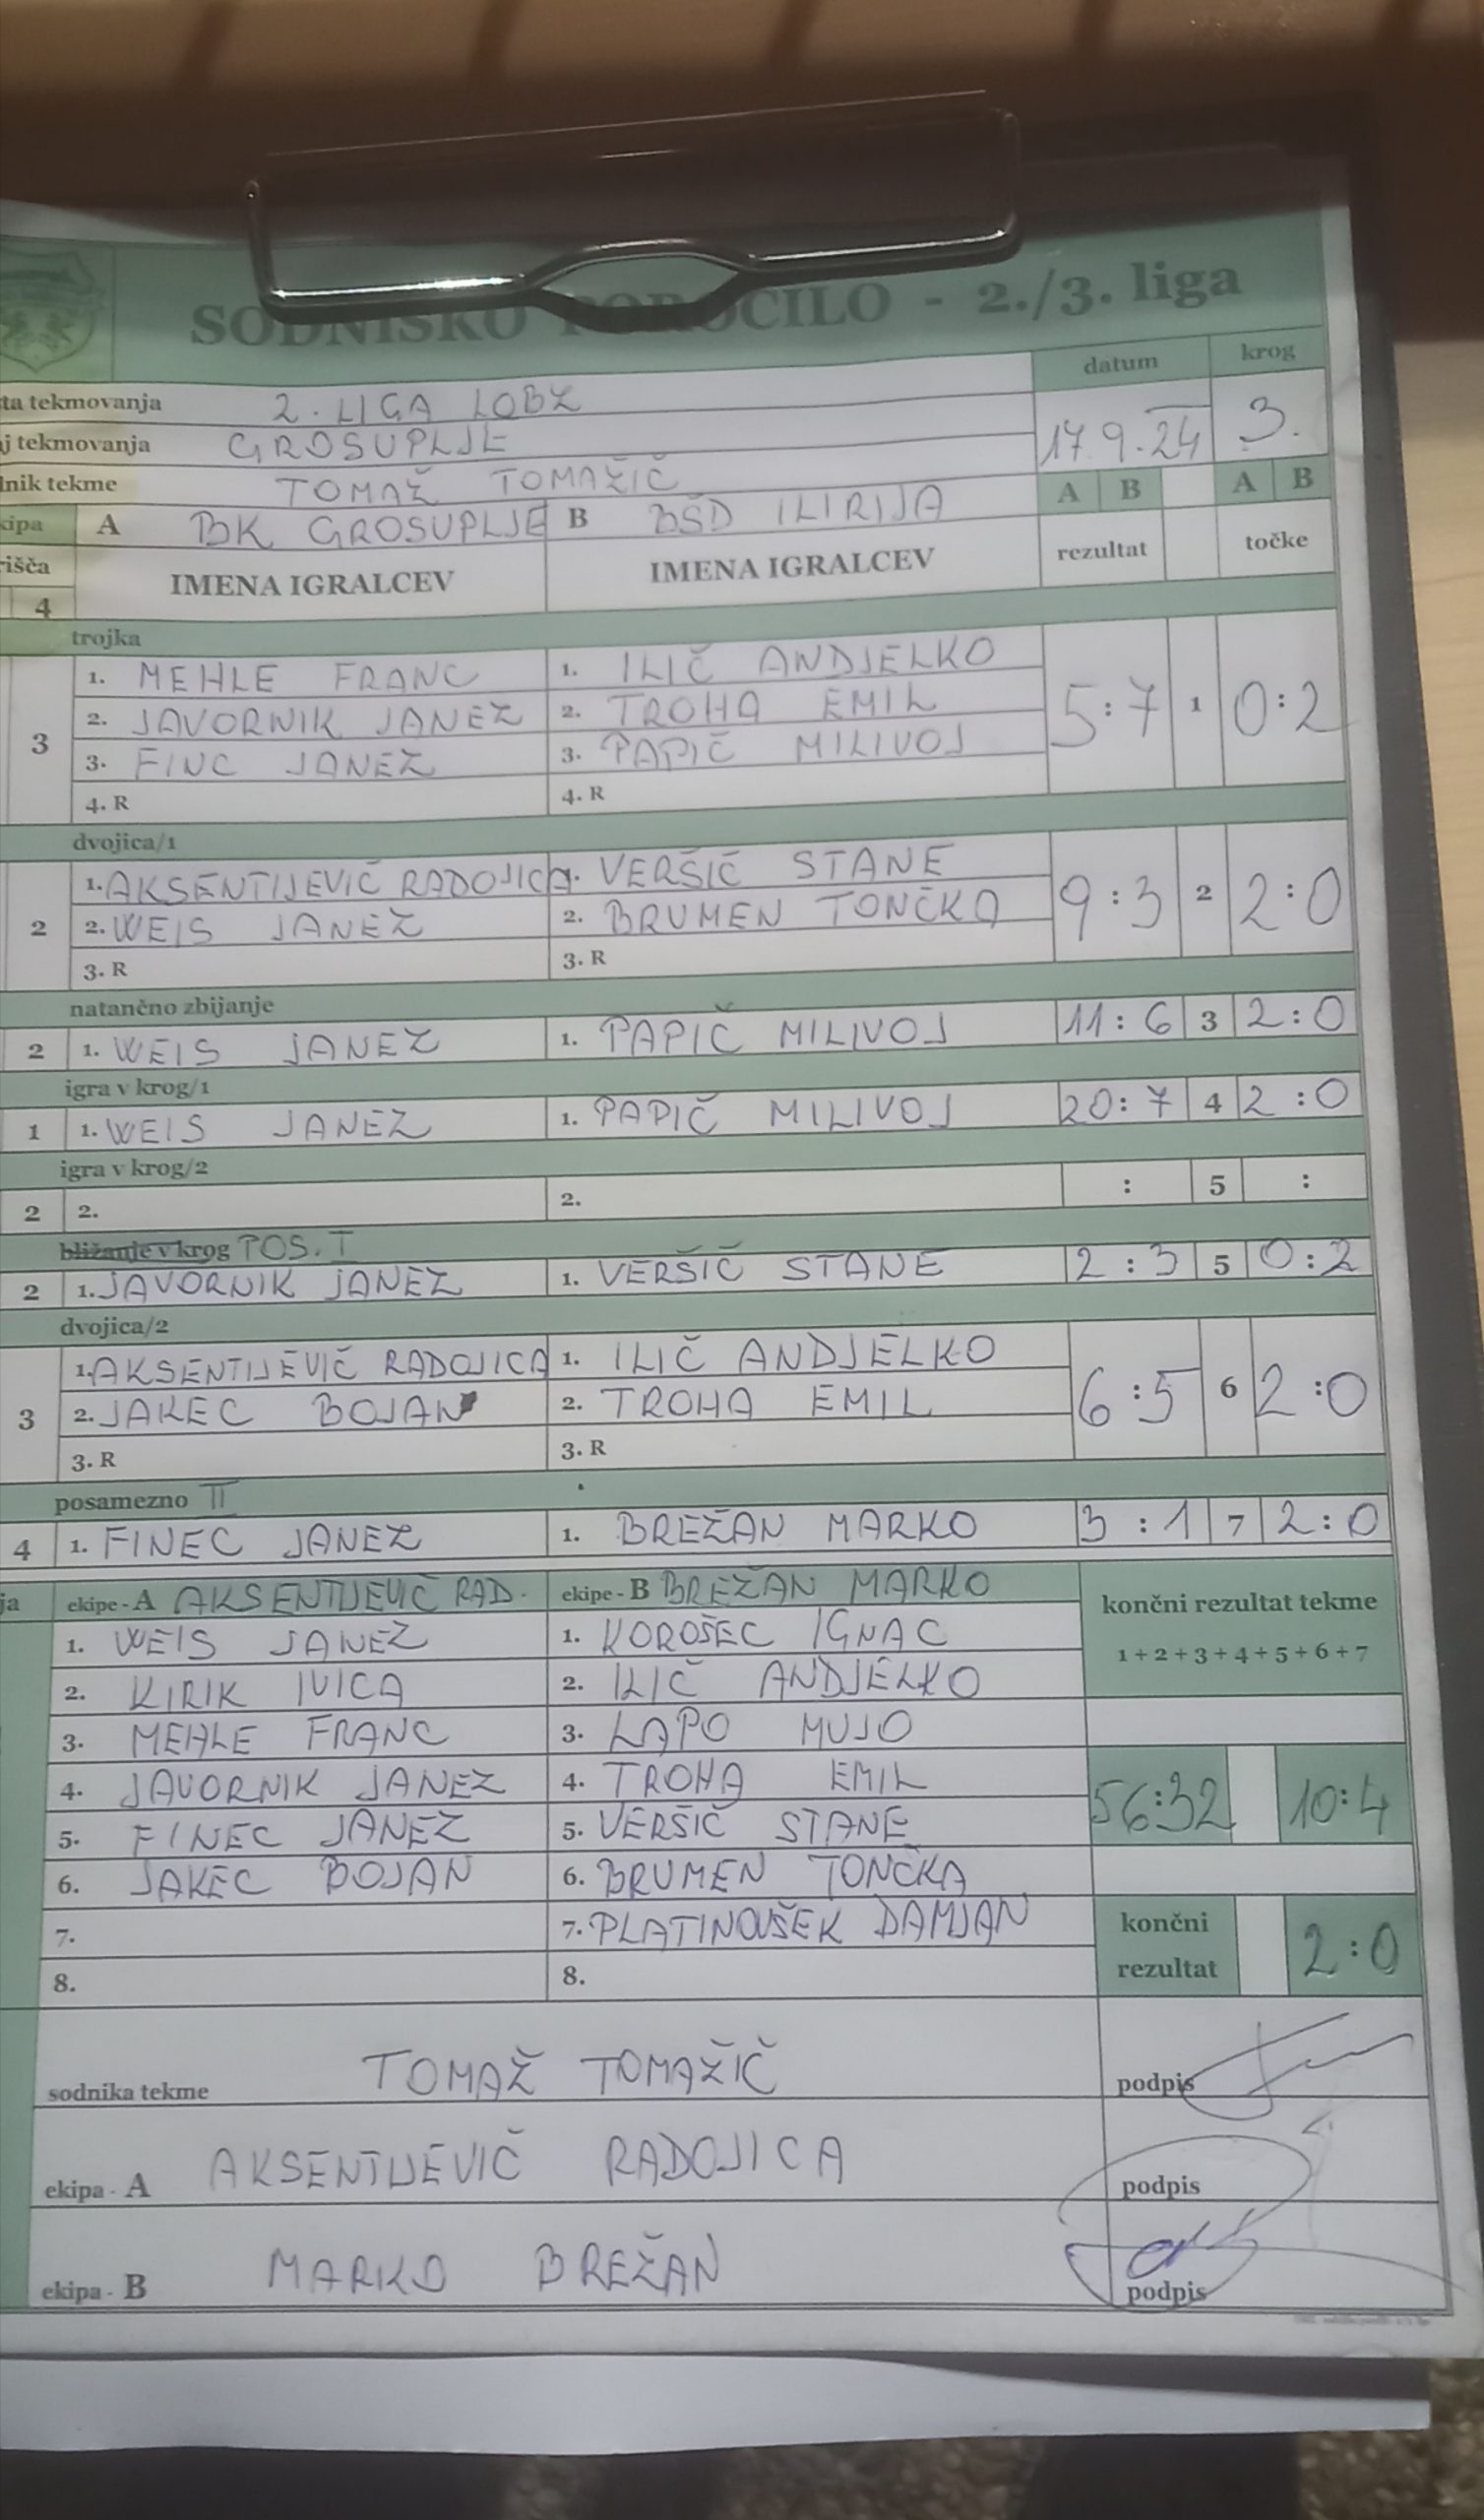 SODNISKO POROCILO - 2./3. liga
datum krog
ta tekmovanja 2. LIGA LOBZ
j tekmovanja GROSUPLJE 17.9.24 3.
nik tekme TOMAŽ TOMAŽIČ A B A B
kipa A BK GROSUPLJE B BŠD ILIRIJA
rišča IMENA IGRALCEV IMENA IGRALCEV rezultat točke
4
trojka
3 1. MEHLE FRANC 1. ILIČ ANDJELKO 5:7 1 0:2
2. JAVORNIK JANEZ 2. TROHA EMIL
3. FINC JANEZ 3. PAPIČ MILIVOJ
4. R 4. R
dvojica/1
2 1. AKSENTIJEVIČ RADOJICA 1. VERŠIČ STANE 9:3 2 2:0
2. WEIS JANEZ 2. BRUMEN TONČKA
3. R 3. R
natančno zbijanje
2 1. WEIS JANEZ 1. PAPIČ MILIVOJ 11:6 3 2:0
igra v krog/1
1 1. WEIS JANEZ 1. PAPIČ MILIVOJ 20:7 4 2:0
igra v krog/2
2 2. 2. : 5 :
bližanje v krog POS. I
2 1. JAVORNIK JANEZ 1. VERŠIČ STANE 2:3 5 0:2
dvojica/2
3 1. AKSENTIJEVIČ RADOJICA 1. ILIČ ANDJELKO 6:5 6 2:0
2. JAKEC BOJAN 2. TROHA EMIL
3. R 3. R
posamezno II
4 1. FINEC JANEZ 1. BREŽAN MARKO 3:1 7 2:0
ja ekipe - A AKSENTIJEVIČ RAD. ekipe - B BREŽAN MARKO končni rezultat tekme
1. WEIS JANEZ 1. KOROŠEC IGNAC 1 + 2 + 3 + 4 + 5 + 6 + 7
2. KIRIK IVICA 2. ILIČ ANDJELKO
3. MEHLE FRANC 3. LAPO MUJO
4. JAVORNIK JANEZ 4. TROHA EMIL 56:32 10:4
5. FINEC JANEZ 5. VERŠIČ STANE
6. JAKEC BOJAN 6. BRUMEN TONČKA
7. 7. PLATINOVŠEK DAMJAN končni
8. 8. rezultat 2:0
sodnika tekme TOMAŽ TOMAŽIČ podpis
ekipa - A AKSENTIJEVIČ RADOJICA podpis
ekipa - B MARKO BREŽAN podpis